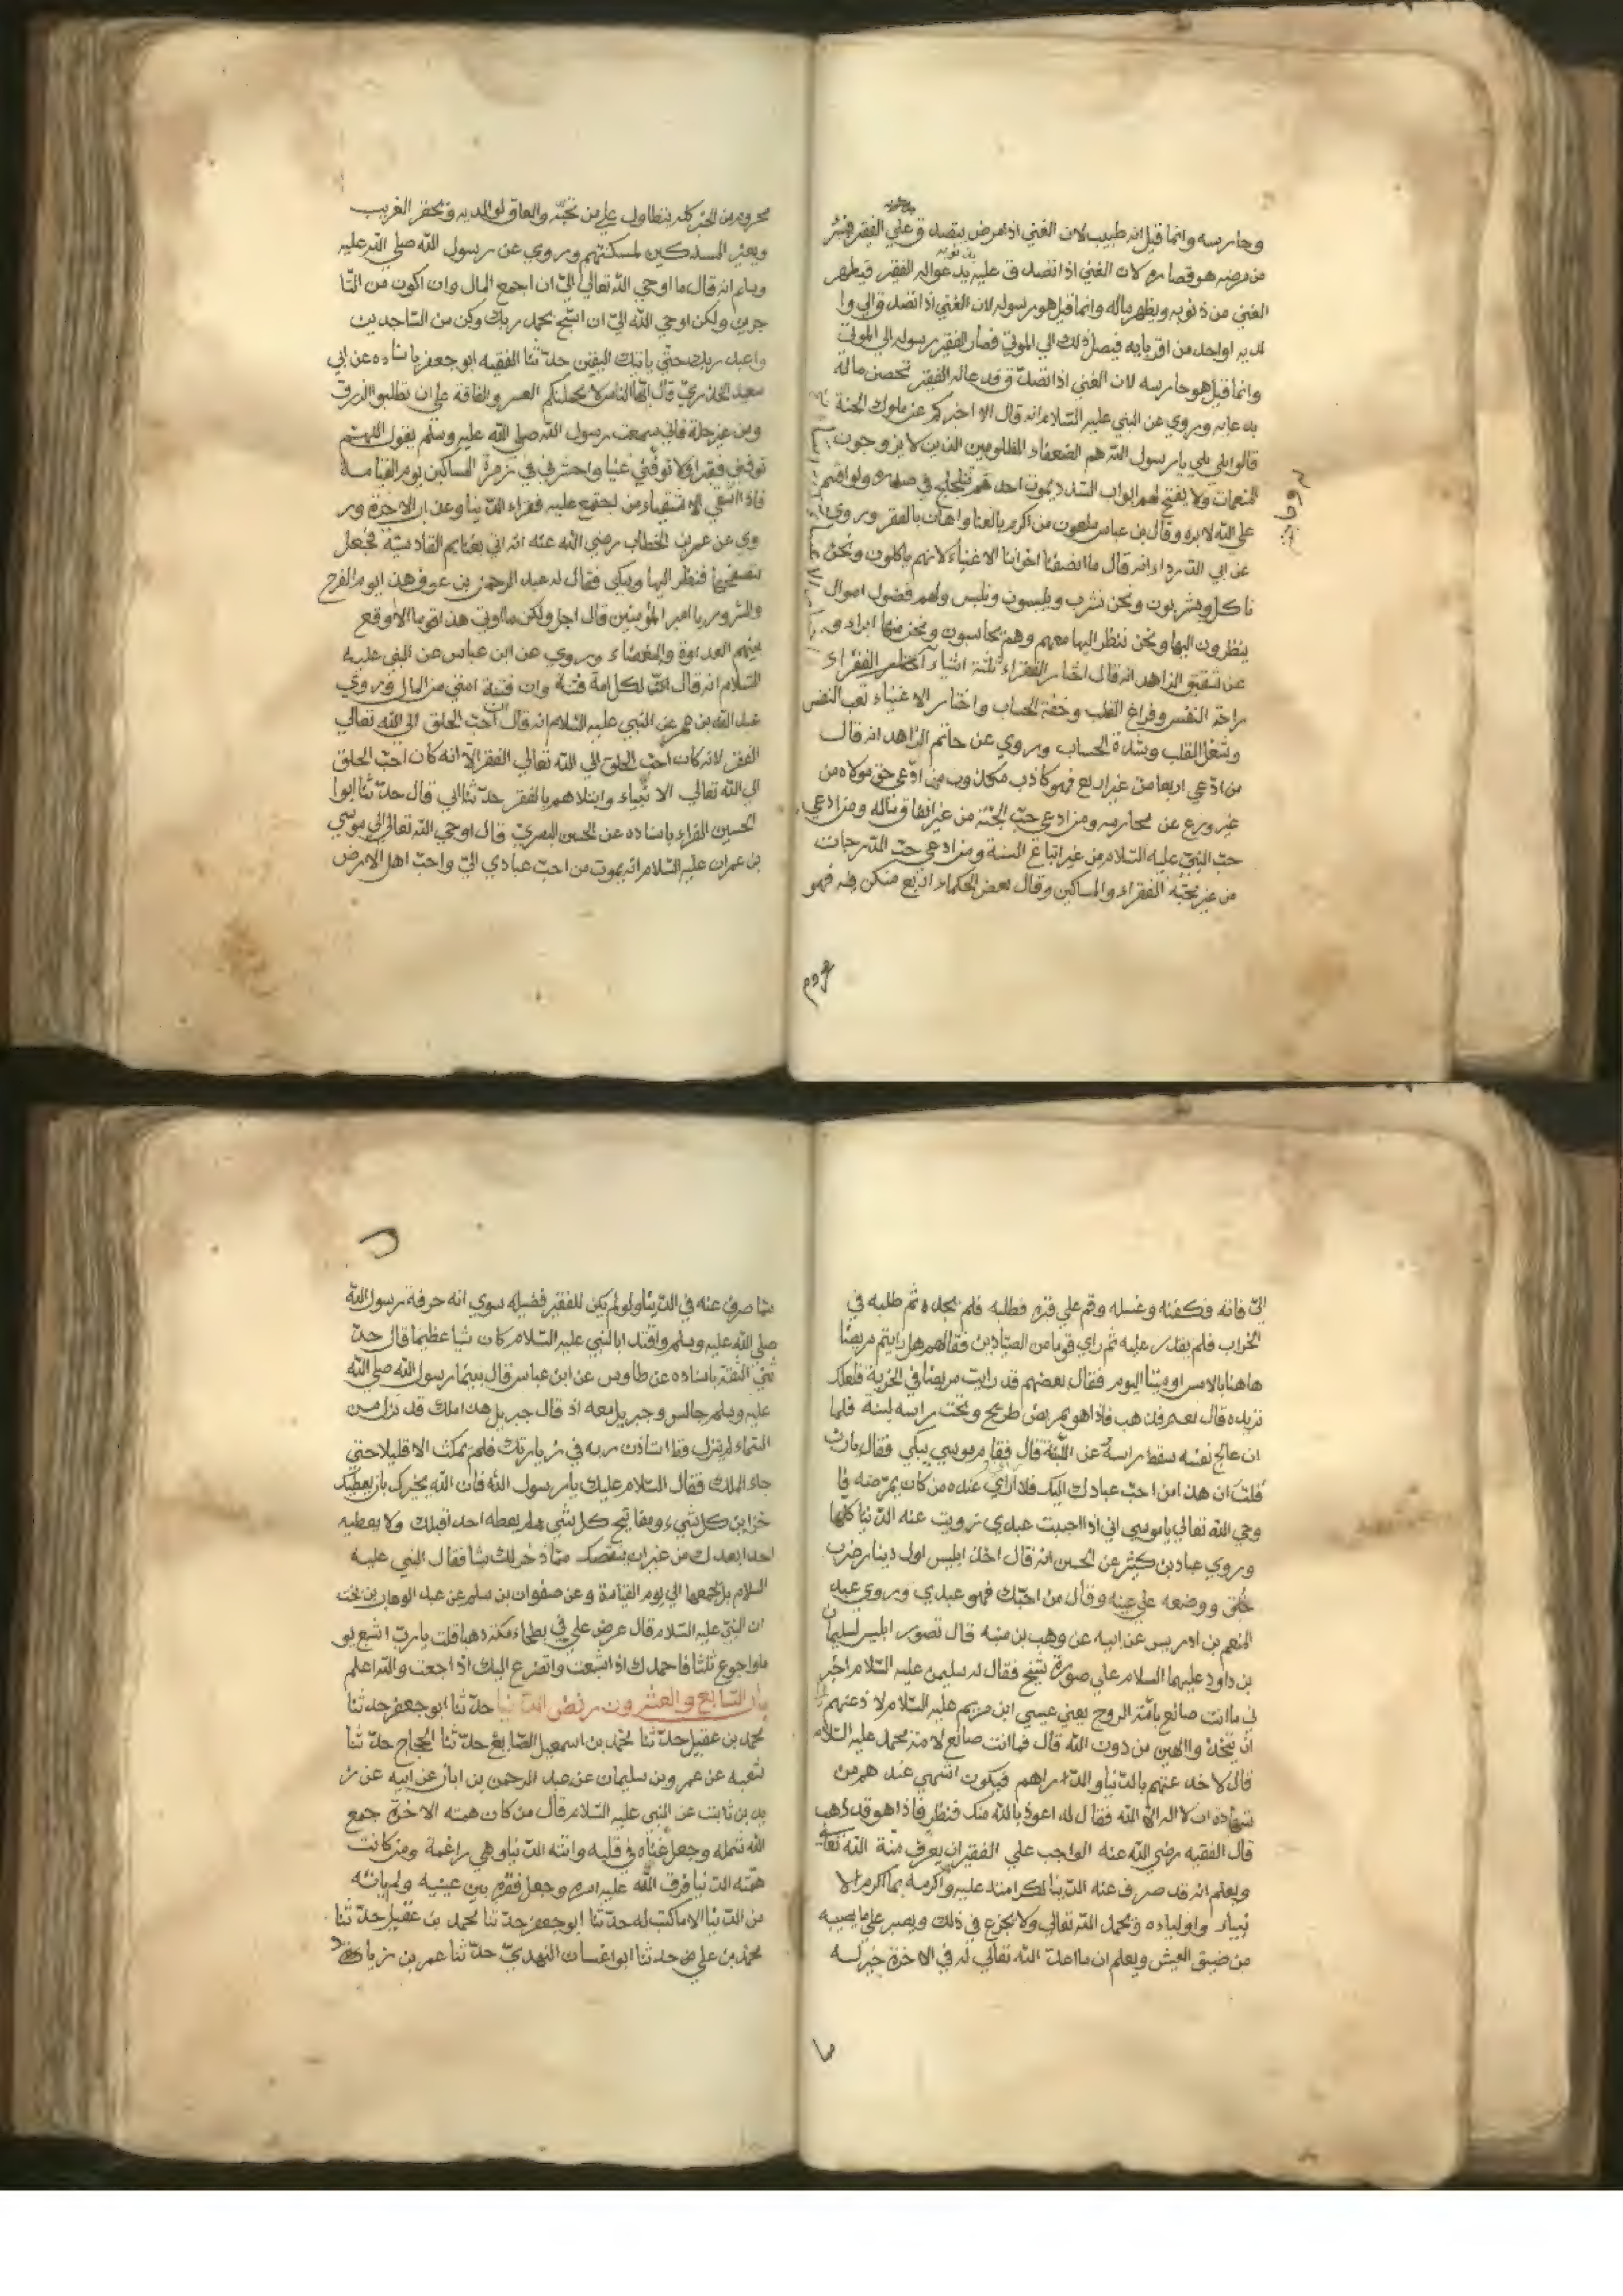 وحارسه وانما قيل انه طبيب لان الغني اذا مرض يتصدق علي الفقير فيبر
من مرضه هو قصاره لان الغني اذا تصدق عليه يدعوا له الفقير فيطهر
الغني من ذنوبه ويطهر ماله وانما قيل هو رسوله لان الغني اذا تصدق الي وا
لديه او احد من اقربايه فيصل ذلك الي الموتي فصار الفقير رسوله الي الموتي
وانما قيل هو حارسه لان الغني اذا تصدق فدعا له الفقير تحصن ماله
بدعايه وروي عن النبي عليه السلام انه قال الا اخبركم عن ملوك الجنة
قالوا بلي يارسول الله هم الضعفاء المظلومين الذين لا يزوجون
المنعمات ولا يفتح لهم ابواب السدد يموت احدهم تتلجلج في صدره ولو اقسم
علي الله لابره وقال بن عباس ملعون من اكرم بالغنا واهان بالفقر وروي
عن ابي الدرداء انه قال ما انصفنا اخواننا الاغنياء لانهم ياكلون ونحن
ناكل ويشربون ونحن نشرب ويلبسون ونلبس ولهم فضول اموال
ينظرون اليها ونحن ننظر اليها معهم وهم يحاسبون ونحن منها
عن شقيق الزاهد انه قال اختار الفقراء ثلثة اشياء الفقراء
راحة النفس وفراغ القلب وخفة الحساب واختار الاغنياء تعب النفس
وشغل القلب وشدة الحساب وروي عن حاتم الزاهد انه قال
من ادعي اربعا من غير اربع فهو كاذب مكذوب من ادعي حق مولاه من
غير ورع عن محارمه ومن ادعي حب الجنة من غير انفاق ماله ومن ادعي
حب النبي عليه السلام من غير اتباع السنة ومن ادعي حب الدرجات
من غير محبة الفقراء والمساكين وقال بعض الحكماء اربع من كن فيه فهو
محروم
محروم من الخير كله يتطاول علي من تحته والعاق لوالديه ويحقر الغريب
ويعير المسكين لمسكنتهم وروي عن رسول الله صلي الله عليه
وسلم انه قال ما اوحي الله تعالي الي ان اجمع المال وان اكون من التا
جرين ولكن اوحي الله الي ان اسبح بحمد ربك وكن من الساجدين
واعبد ربك حتي ياتيك اليقين حدثنا الفقيه ابو جعفر باسناده عن ابي
سعيد الخدري قال ايها الناس لا يحملنكم العسر والفاقة علي ان تطلبوا الرزق
من غير حله فاني سمعت رسول الله صلي الله عليه وسلم يقول اللهم
توفني فقيرا ولا توفني غنيا واحشرني في زمرة المساكين يوم القيامة
فاذا اشقي الاشقياء من يجتمع عليه فقراء الدنيا وعذاب الاخرة ور
وي عن عمر بن الخطاب رضي الله عنه انه اتي بغنايم القادسية فجعل
يتصفحها فنظر اليها ويبكي فقال له عبد الرحمن بن عوف هذا يوم الفرح
والسرور يا امير المؤمنين قال اجل ولكن ما اوتي هذا قوما الا وقع
بينهم العداوة والبغضاء وروي عن ابن عباس عن النبي عليه
السلام انه قال ان لكل امة فتنة وان فتنة امتي من المال وروي
عبد الله بن عمر عن النبي عليه السلام انه قال ان احب الخلق الي الله تعالي
الفقير لانه كان احب الخلق الي الله تعالي الفقر الا انه كان احب الخلق
الي الله تعالي الانبياء وابتلاهم بالفقر حدثنا ابي قال حدثنا ابوا
الحسين الفراء باسناده عن الحسن البصري قال اوحي الله تعالي الي موسي
بن عمران عليه السلام انه يموت من احب عبادي الي واحب اهل الارض
الي فاته فكفنه وغسله وقم علي قبره فطلبه فلم يجده ثم طلبه في
الخراب فلم يقدر عليه ثم راي قوما من الصيادين فقال لهم هل رايتم مريضا
هاهنا بالامس او ميتا اليوم فقال بعضهم قد رايت مريضا في الخربة فلعلك
تريده قال نعم فذهب فاذا هو بمريض طريح وتحت راسه لبنة فلما
ان عالج نفسه سقط راسه عن اللبنة قال فقام موسي يبكي فقال يارب
قلت ان هذا من احب عبادك اليك فلا اري عنده من كان يمرضه فا
وحي الله تعالي يا موسي اني اذا احببت عبدي زويت عنه الدنيا كلها
وروي عباد بن كثير عن الحسن انه قال اخذ ابليس اول دينار ضرب
خلق ووضعه علي عينه وقال من احبك فهو عبدي وروي عبد
المنعم بن ادريس عن ابيه عن وهب بن منبه قال تصور ابليس لسليمان
بن داود عليهما السلام علي صورة شيخ فقال له سليمن عليه السلام اخبر
ني ما انت صانع بامة الروح يعني عيسي ابن مريم عليه السلام لا دعتهم
ان يتخذوا الهين من دون الله قال فما انت صانع لامة محمد عليه السلام
قال لاخدعنهم بالدنيا والدراهم فيكون اشهي عندهم من
شهادة ان لا اله الا الله فقال له اعوذ بالله منك فنظر فاذا هو قد ذهب
قال الفقيه رضي الله عنه الواجب علي الفقير ان يعرف منة الله تعالي
ويعلم انه قد صرف عنه الدنيا لكرامته عليه واكرمه بما اكرم الا
نبياء واولياءه ويحمد الله تعالي ولا يجزع في ذلك ويصبر علي ما يصيبه
من ضيق العيش ويعلم ان ما اعد الله تعالي له في الاخرة خير له
مما
مما صرف عنه في الدنيا ولو لم يكن للفقير فضيلة سوي انه حرفة رسول الله
صلي الله عليه وسلم واقتدا بالنبي عليه السلام كان شيا عظيما قال حد
ثني الثقة باسناده عن طاوس عن ابن عباس قال بينما رسول الله صلي الله
عليه وسلم جالس وجبريل معه اذ قال جبريل هذا ملك قد نزل من
السماء لم ينزل قط استاذن ربه في زيارتك فلم يمكث الا قليلا حتي
جاء الملك فقال السلام عليك يارسول الله فان الله يخبرك بان يعطيك
خزاين كل شيء ومفاتيح كل شي لم يعطه احد قبلك ولا يعطيه
احدا بعدك من غير ان ينقصك مما ذخر لك شيا فقال النبي عليه
السلام بل يجمعها الي يوم القيامة وعن صفوان بن سليم عن عبد الوهاب بن بخت
ان النبي عليه السلام قال عرض علي في بطحاء مكة ذهبا قلت يارب اشبع يو
ما واجوع ثلثا فاحمدك اذا شبعت واتضرع اليك اذا جعت والله اعلم
باب السابع والعشرون رفض الدنيا حدثنا ابو جعفر حدثنا
محمد بن عقيل حدثنا محمد بن اسمعيل الصايغ حدثنا الحجاج حدثنا
شعبه عن عمرو بن سليمان عن عبد الرحمن بن ابان عن ابيه عن ز
يد بن ثابت عن النبي عليه السلام قال من كان همته الاخرة جمع
الله شمله وجعل غناه في قلبه واتته الدنيا وهي راغمة ومن كانت
همته الدنيا فرق الله عليه امره وجعل فقره بين عينيه ولم ياته
من الدنيا الا ما كتب له حدثنا ابو جعفر حدثنا محمد بن عقيل حدثنا
محمد بن علي حدثنا ابوا غسان النهدي حدثنا عمر بن زياد